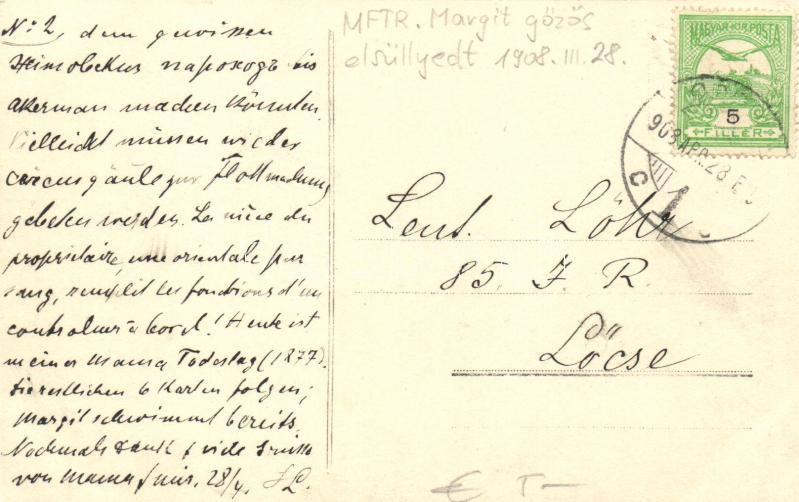 No 2, dem gewissen
пароходъ bis
akerman machen könnten.
Vielleicht müssen wieder
circusgäule zur Flottmachung
gebeten werden. La nièce du
propriétaire, une orientale pur
sang, remplit les fonctions d'un
à bord! Heute ist
meiner Mama Todestag (1877).
Die restlichen 6 Karten folgen;
Margit schwimmt bereits.
Nochmals Dank & viele Grüsse
von Mama & mir. 28/4.
MFTR. Margit gőzös
elsüllyedt 1908. III. 28.
MAGYAR KIR. POSTA
5
FILLÉR
908 APR. 28
C
Leut. Löhr
85. I. R.
Löcse
€ T-